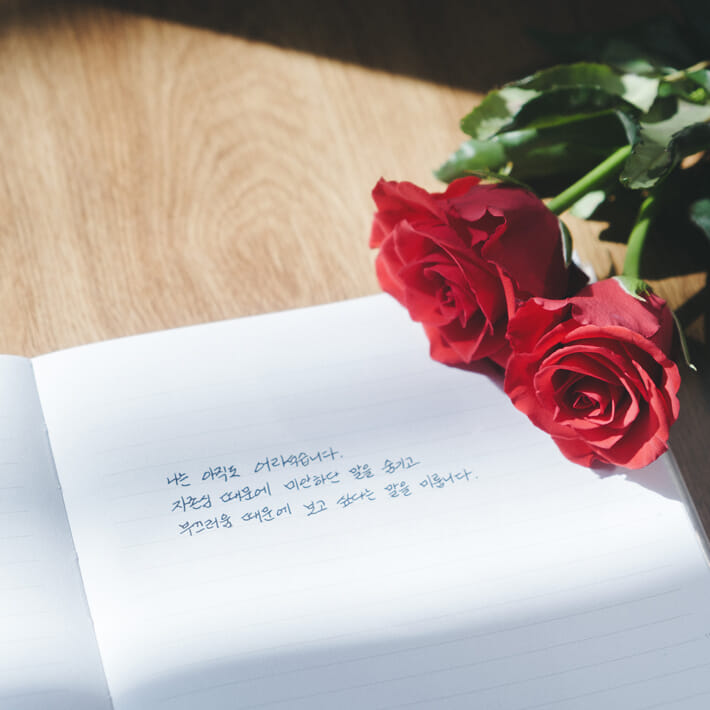 나는 아직도 어리석습니다.
자존심 때문에 미안하단 말을 숨기고
부끄러움 때문에 보고 싶다는 말을 미룹니다.